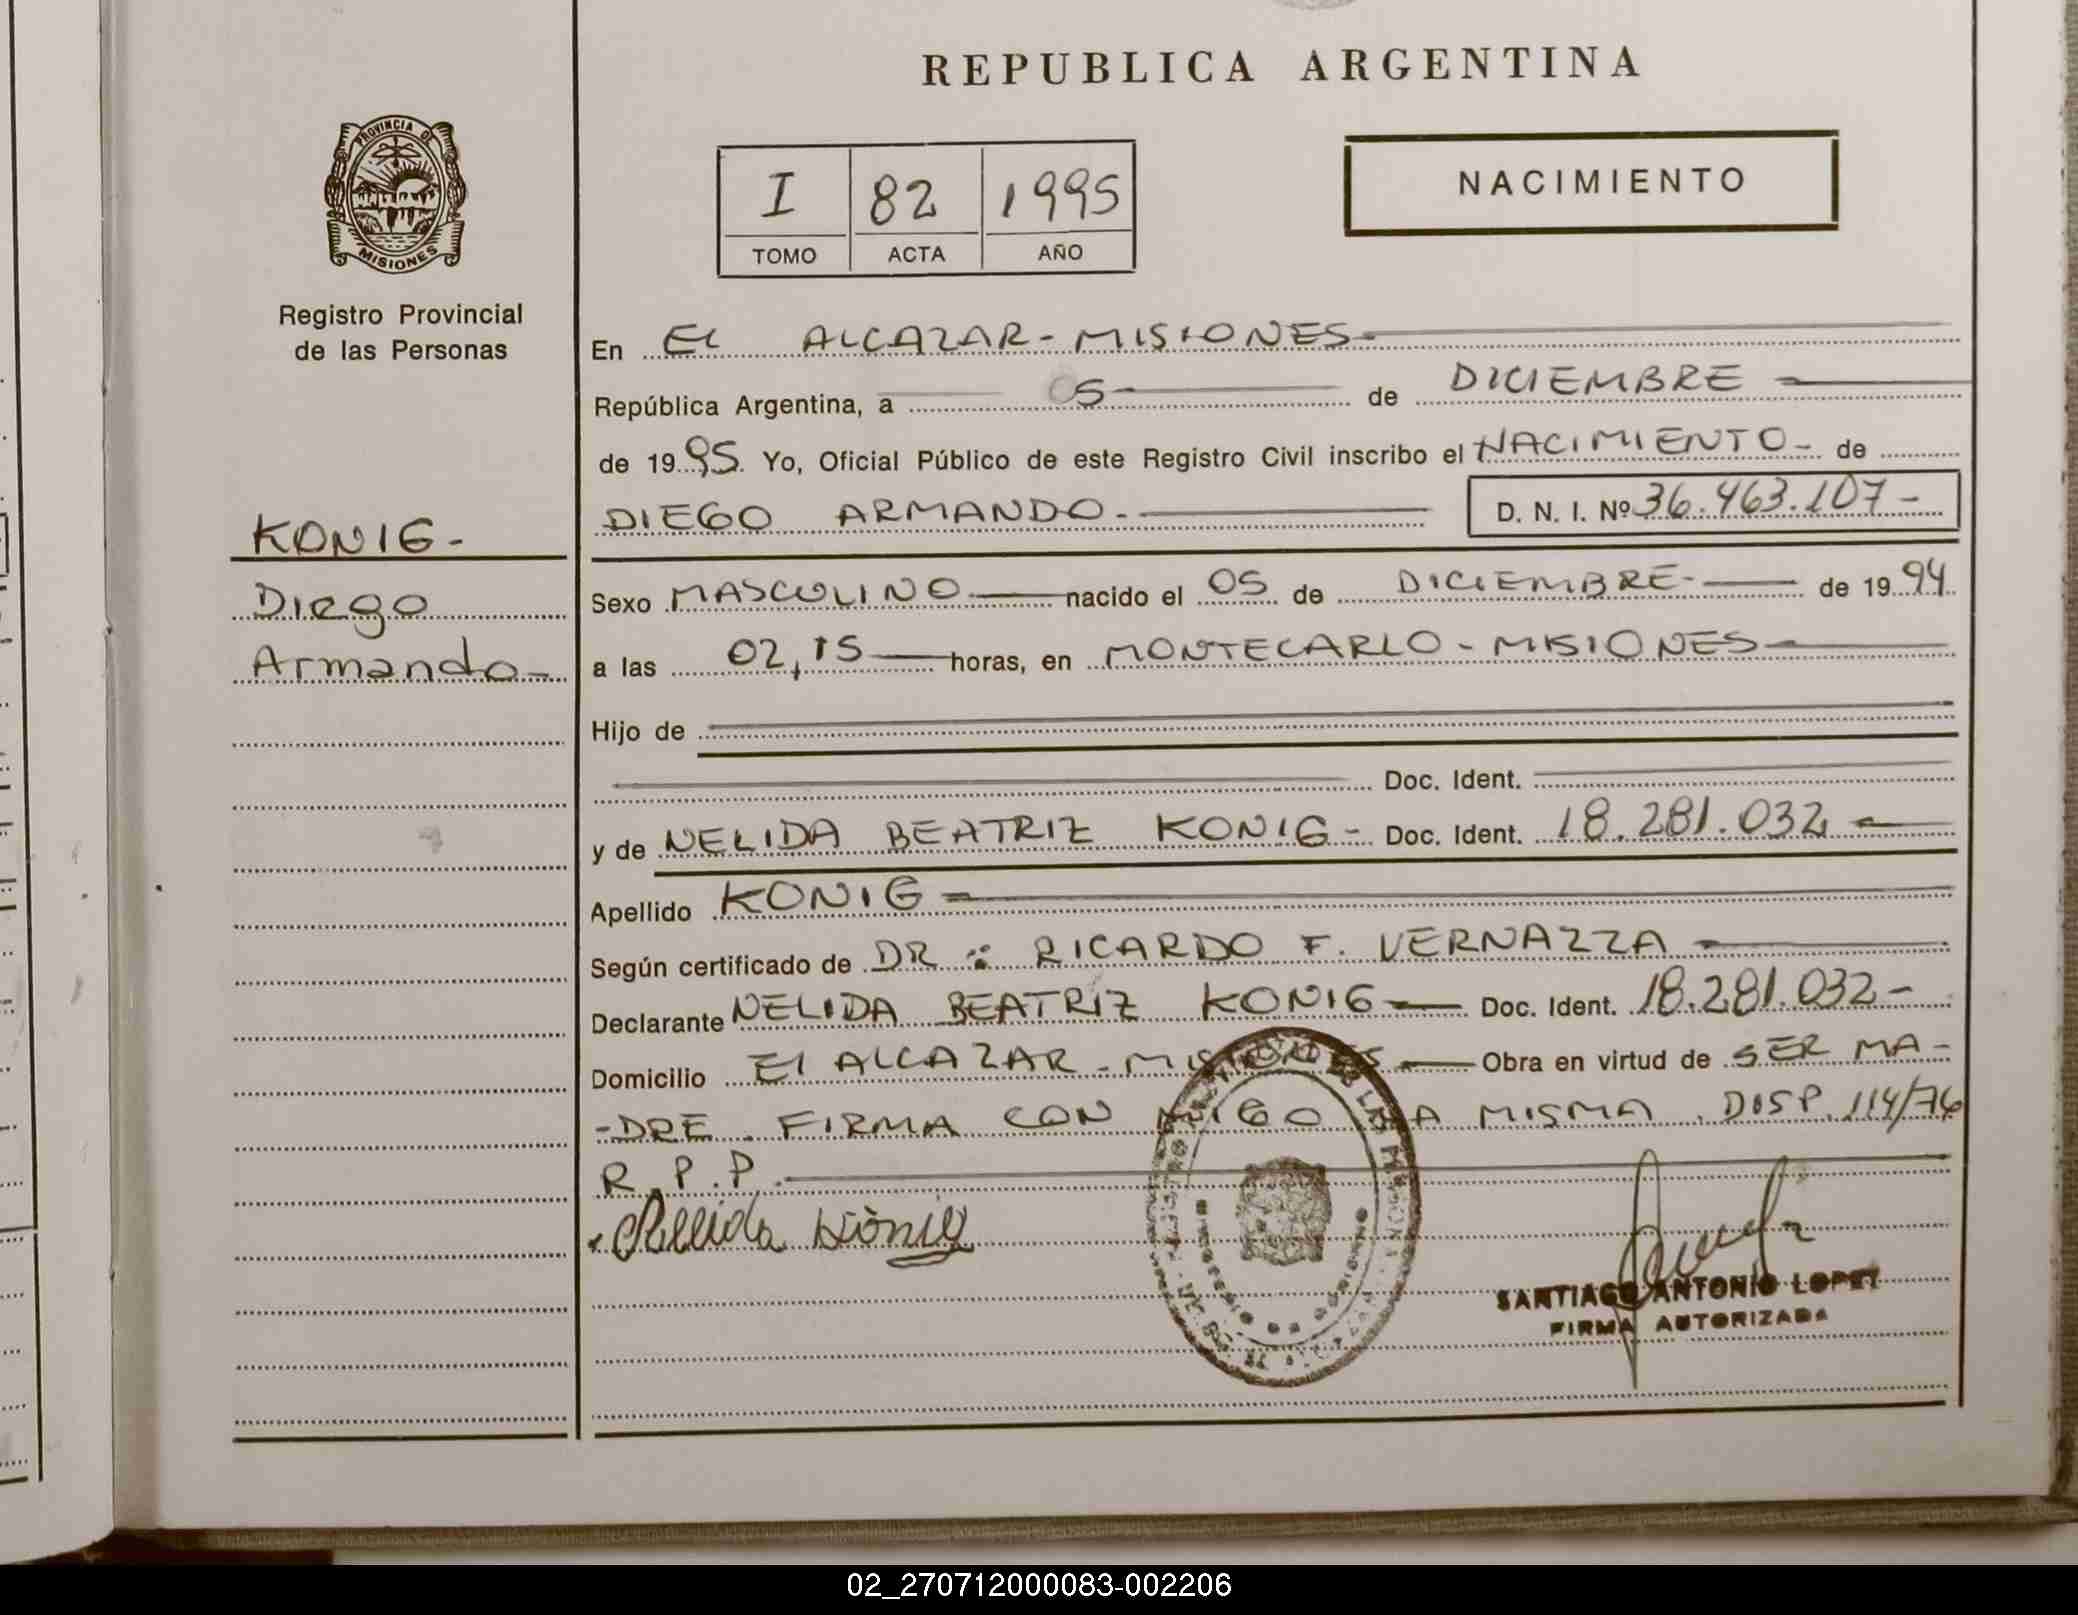 REPUBLICA ARGENTINA
PROVINCIA DE MISIONES
Registro Provincial
de las Personas
I 82 1995
TOMO ACTA AÑO
NACIMIENTO
KONIG-
Diego
Armando-
En EL ALCAZAR - MISIONES
República Argentina, a 05 de DICIEMBRE
de 1995. Yo, Oficial Público de este Registro Civil inscribo el NACIMIENTO- de
DIEGO ARMANDO.- D. N. I. Nº 36.463.107-
Sexo MASCULINO nacido el 05 de DICIEMBRE- de 1994.
a las 02,15 horas, en MONTECARLO - MISIONES
Hijo de
Doc. Ident.
y de NELIDA BEATRIZ KONIG- Doc. Ident. 18.281.032
Apellido KONIG
Según certificado de DR: RICARDO F. VERNAZZA
Declarante NELIDA BEATRIZ KONIG Doc. Ident. 18.281.032-
Domicilio El ALCAZAR - MISIONES Obra en virtud de SER MA-
-DRE. FIRMA CON MIGO LA MISMA. DISP. 114/76
R.P.P.
Nellida König
SANTIAGO ANTONIO LOPEZ
FIRMA AUTORIZADA
02_270712000083-002206